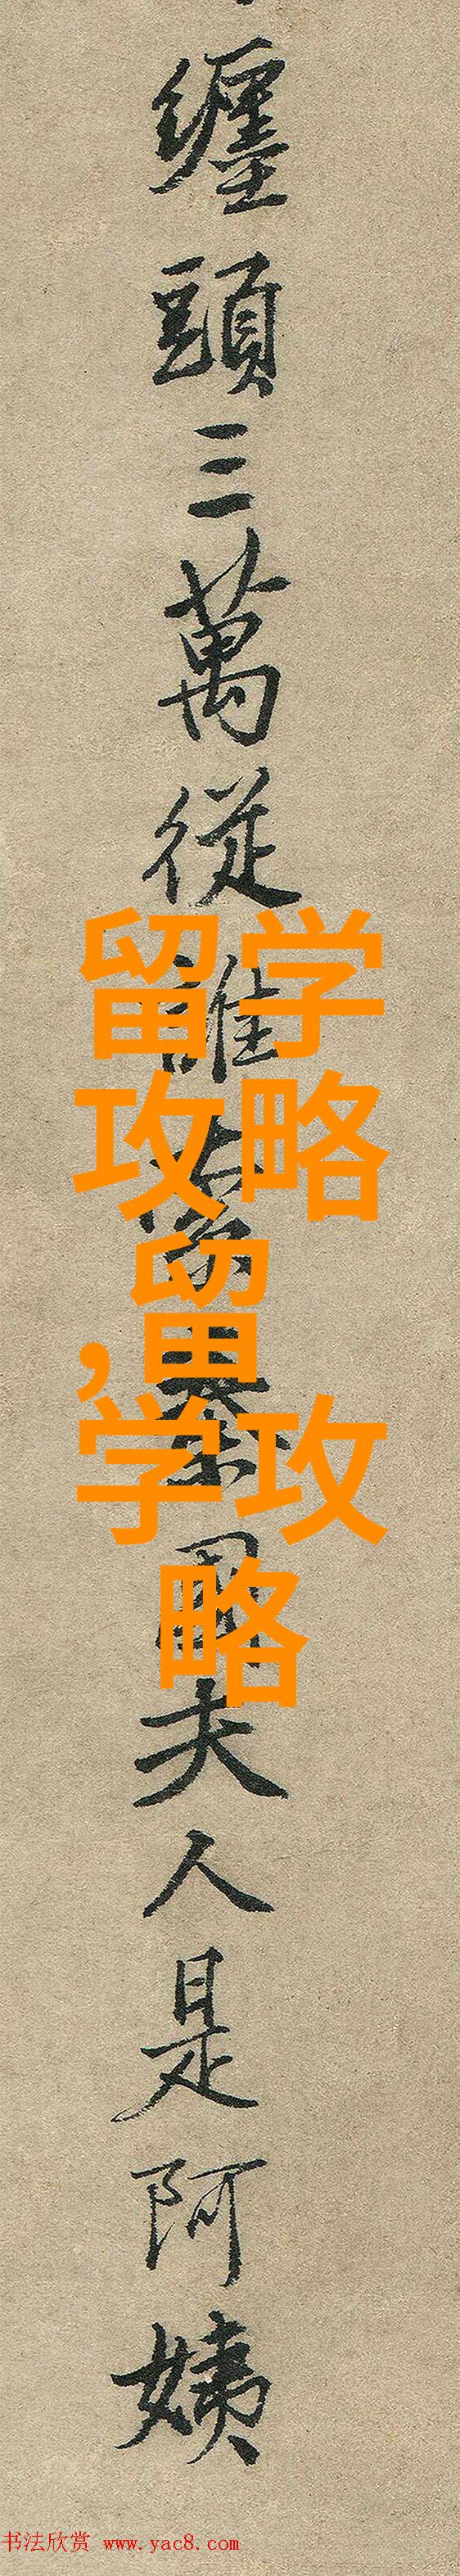 纒頭三萬從誰索秦國夫人是阿姨
留学
攻略
,留
学攻
略
书法欣赏 www.yac8.com